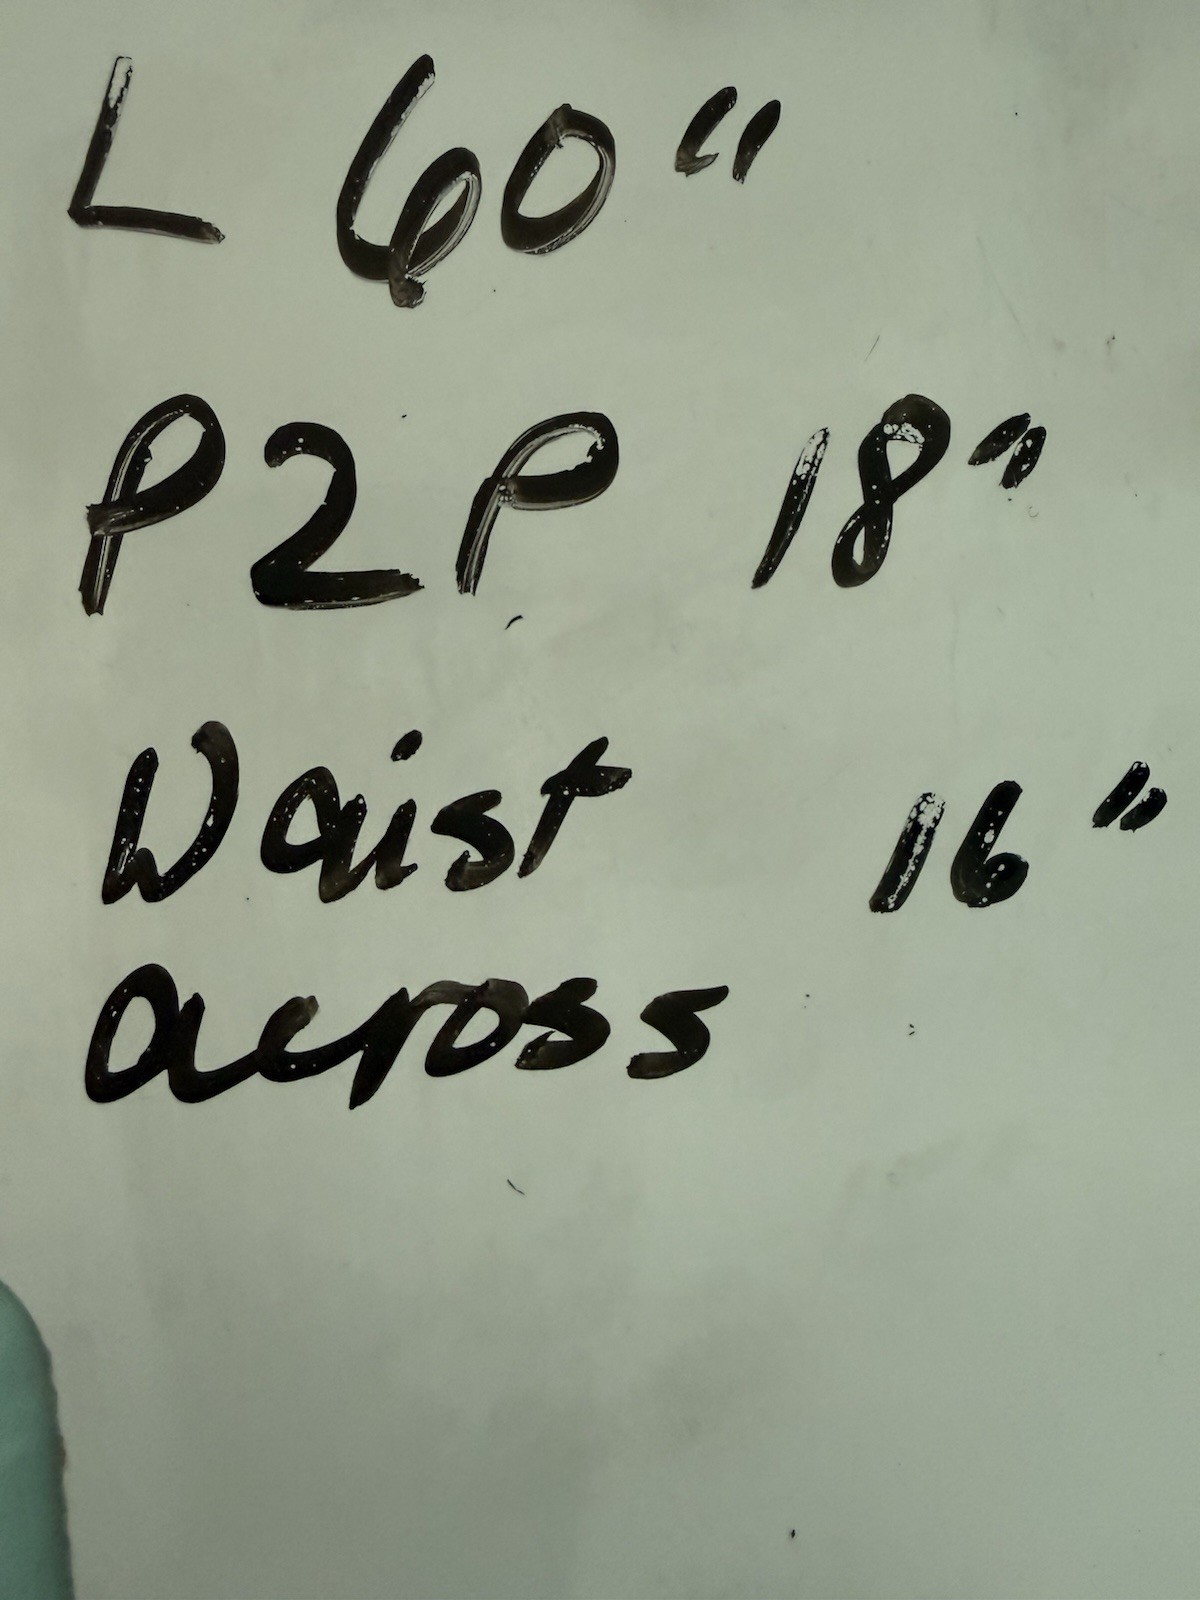 L 60"
P2P 18"
Waist 16"
across